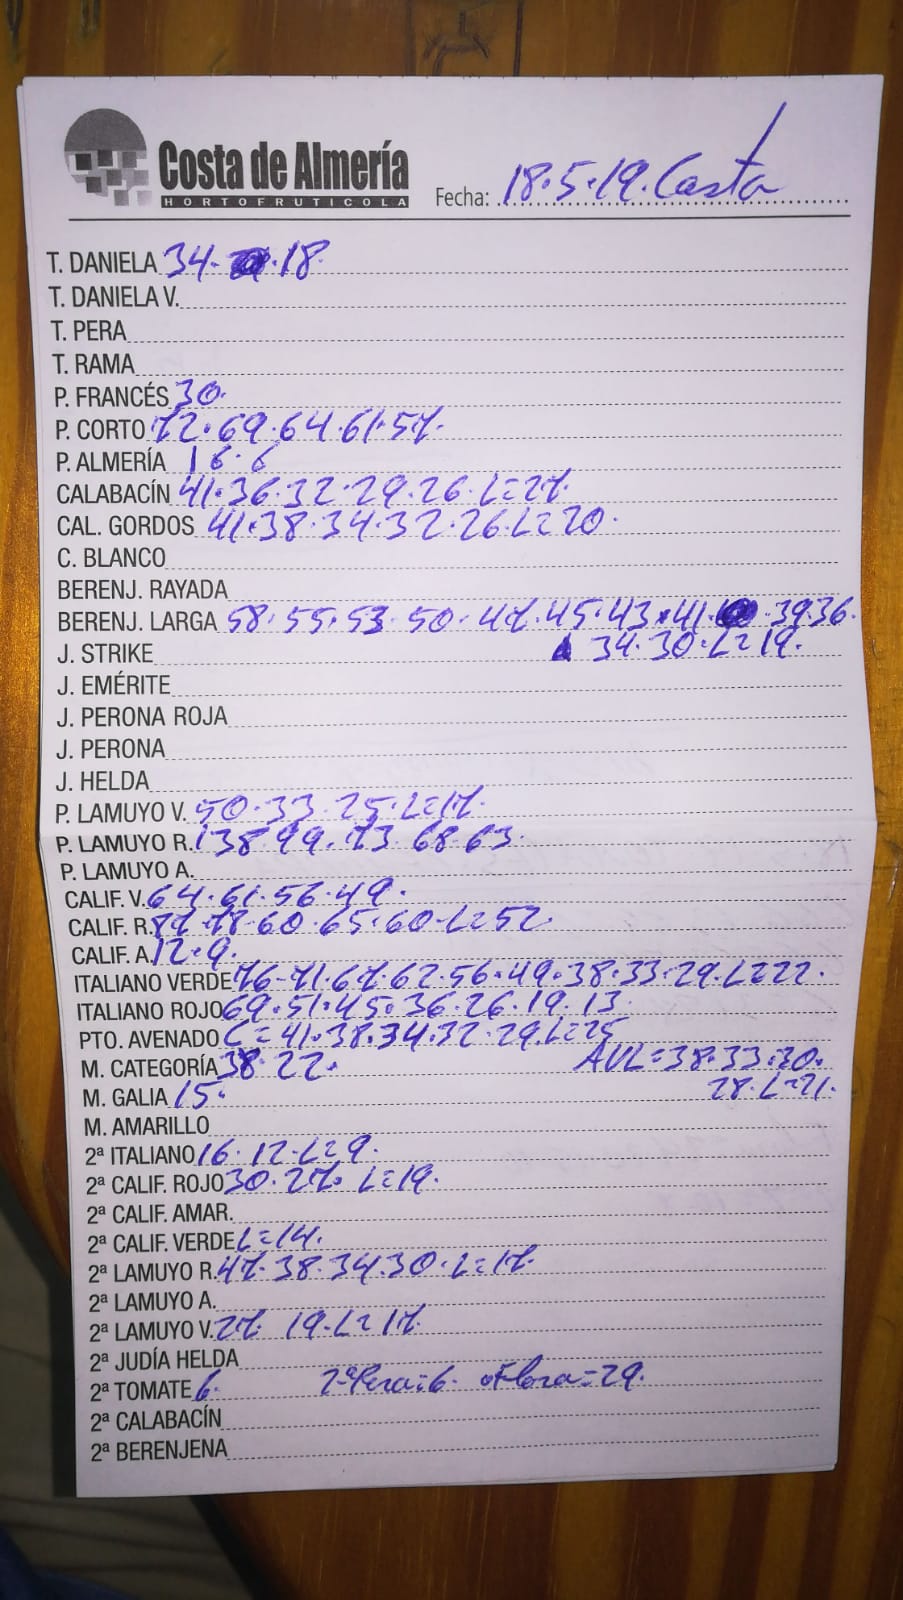 Costa de Almería
HORTOFRUTICOLA
Fecha: 18.5.19. Costa
T. DANIELA 34. .18
T. DANIELA V.
T. PERA
T. RAMA
P. FRANCÉS 30.
P. CORTO 72.69.64.61.57.
P. ALMERÍA 16.6
CALABACÍN 41.36.32.29.26.L=27.
CAL. GORDOS 41.38.34.32.26.L=20.
C. BLANCO
BERENJ. RAYADA
BERENJ. LARGA 58.55.53.50.47.45.43.41. .39.36.
J. STRIKE 34.30.L=19.
J. EMÉRITE
J. PERONA ROJA
J. PERONA
J. HELDA
P. LAMUYO V. 50.33.25.L=17.
P. LAMUYO R. 138.99.73.68.63.
P. LAMUYO A.
CALIF. V. 64.61.56.49.
CALIF. R. 87.78.60.65.60.L=52.
CALIF. A. 12.9.
ITALIANO VERDE 76.71.67.62.56.49.38.33.29.L=22.
ITALIANO ROJO 69.51.45.36.26.19.13.
PTO. AVENADO C=41.38.34.32.29.L=25
M. CATEGORÍA 38.22. AVL=38.33.30.
M. GALIA 15. 28.L=21.
M. AMARILLO
2ª ITALIANO 16.12.L=9.
2ª CALIF. ROJO 30.27. L=19.
2ª CALIF. AMAR.
2ª CALIF. VERDE L=14.
2ª LAMUYO R. 47.38.34.30.L=17.
2ª LAMUYO A.
2ª LAMUYO V. 27. 19.L=17.
2ª JUDÍA HELDA
2ª TOMATE 6. 2ªPera=6. =29.
2ª CALABACÍN
2ª BERENJENA